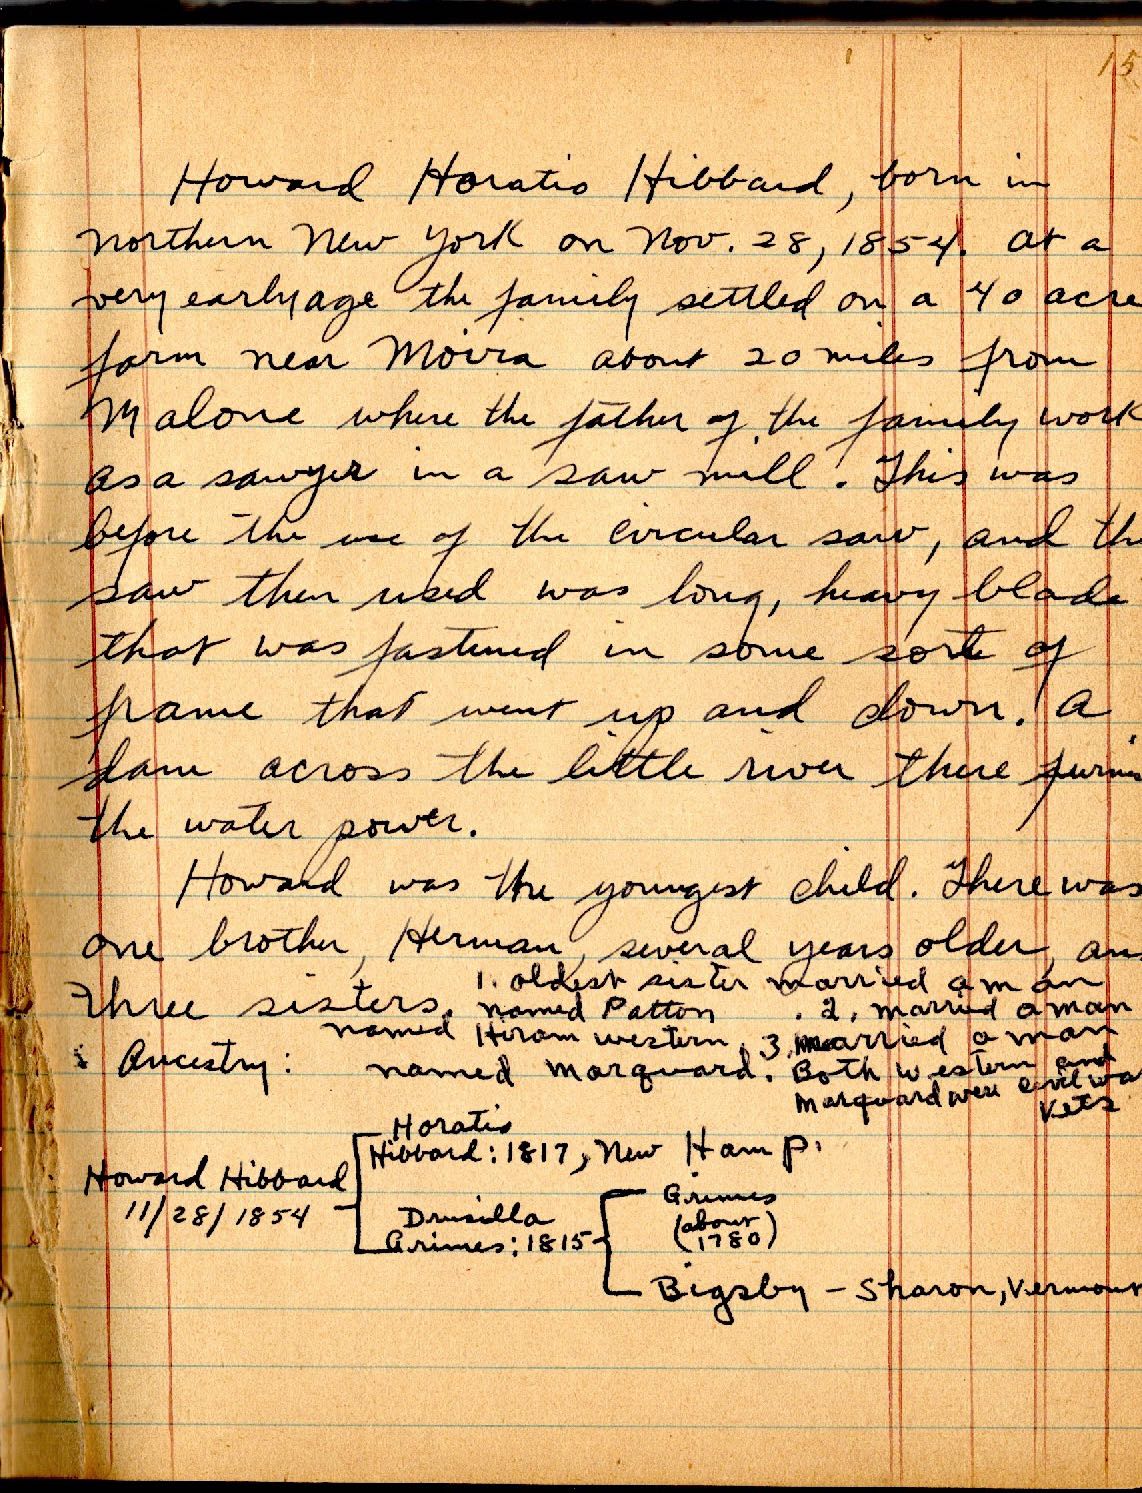 15
Howard Horatio Hibbard, born in
northern New York on Nov. 28, 1854. At a
very early age the family settled on a 40 acre
farm near Moira about 20 miles from
Malone where the father of the family work
as a sawyer in a saw mill. This was
before the use of the circular saw, and the
saw then used was long, heavy blade
that was fastened in some sort of
frame that went up and down. A
dam across the little river there furni
the water power.
Howard was the youngest child. There was
one brother, Herman, several years older, an
three sisters. 1. oldest sister married a man
named Patton . 2. married a man
named Hiram western, 3. married a man
Ancestry: named Marquard. Both western and
Marquard were civil wa
Vets
Horatio
Hibbard: 1817, New Hamp.
Howard Hibbard
11/28/1854
Drusilla
Grimes: 1815
Grimes
(about
1780)
Bigsby - Sharon, Vermont